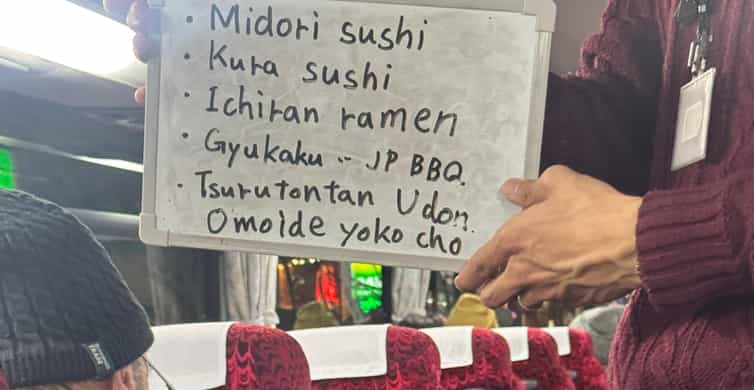 • Midori sushi
• Kura sushi
• Ichiran ramen
• Gyukaku -- JP BBQ.
• Tsurutontan Udon.
Omoide yoko cho